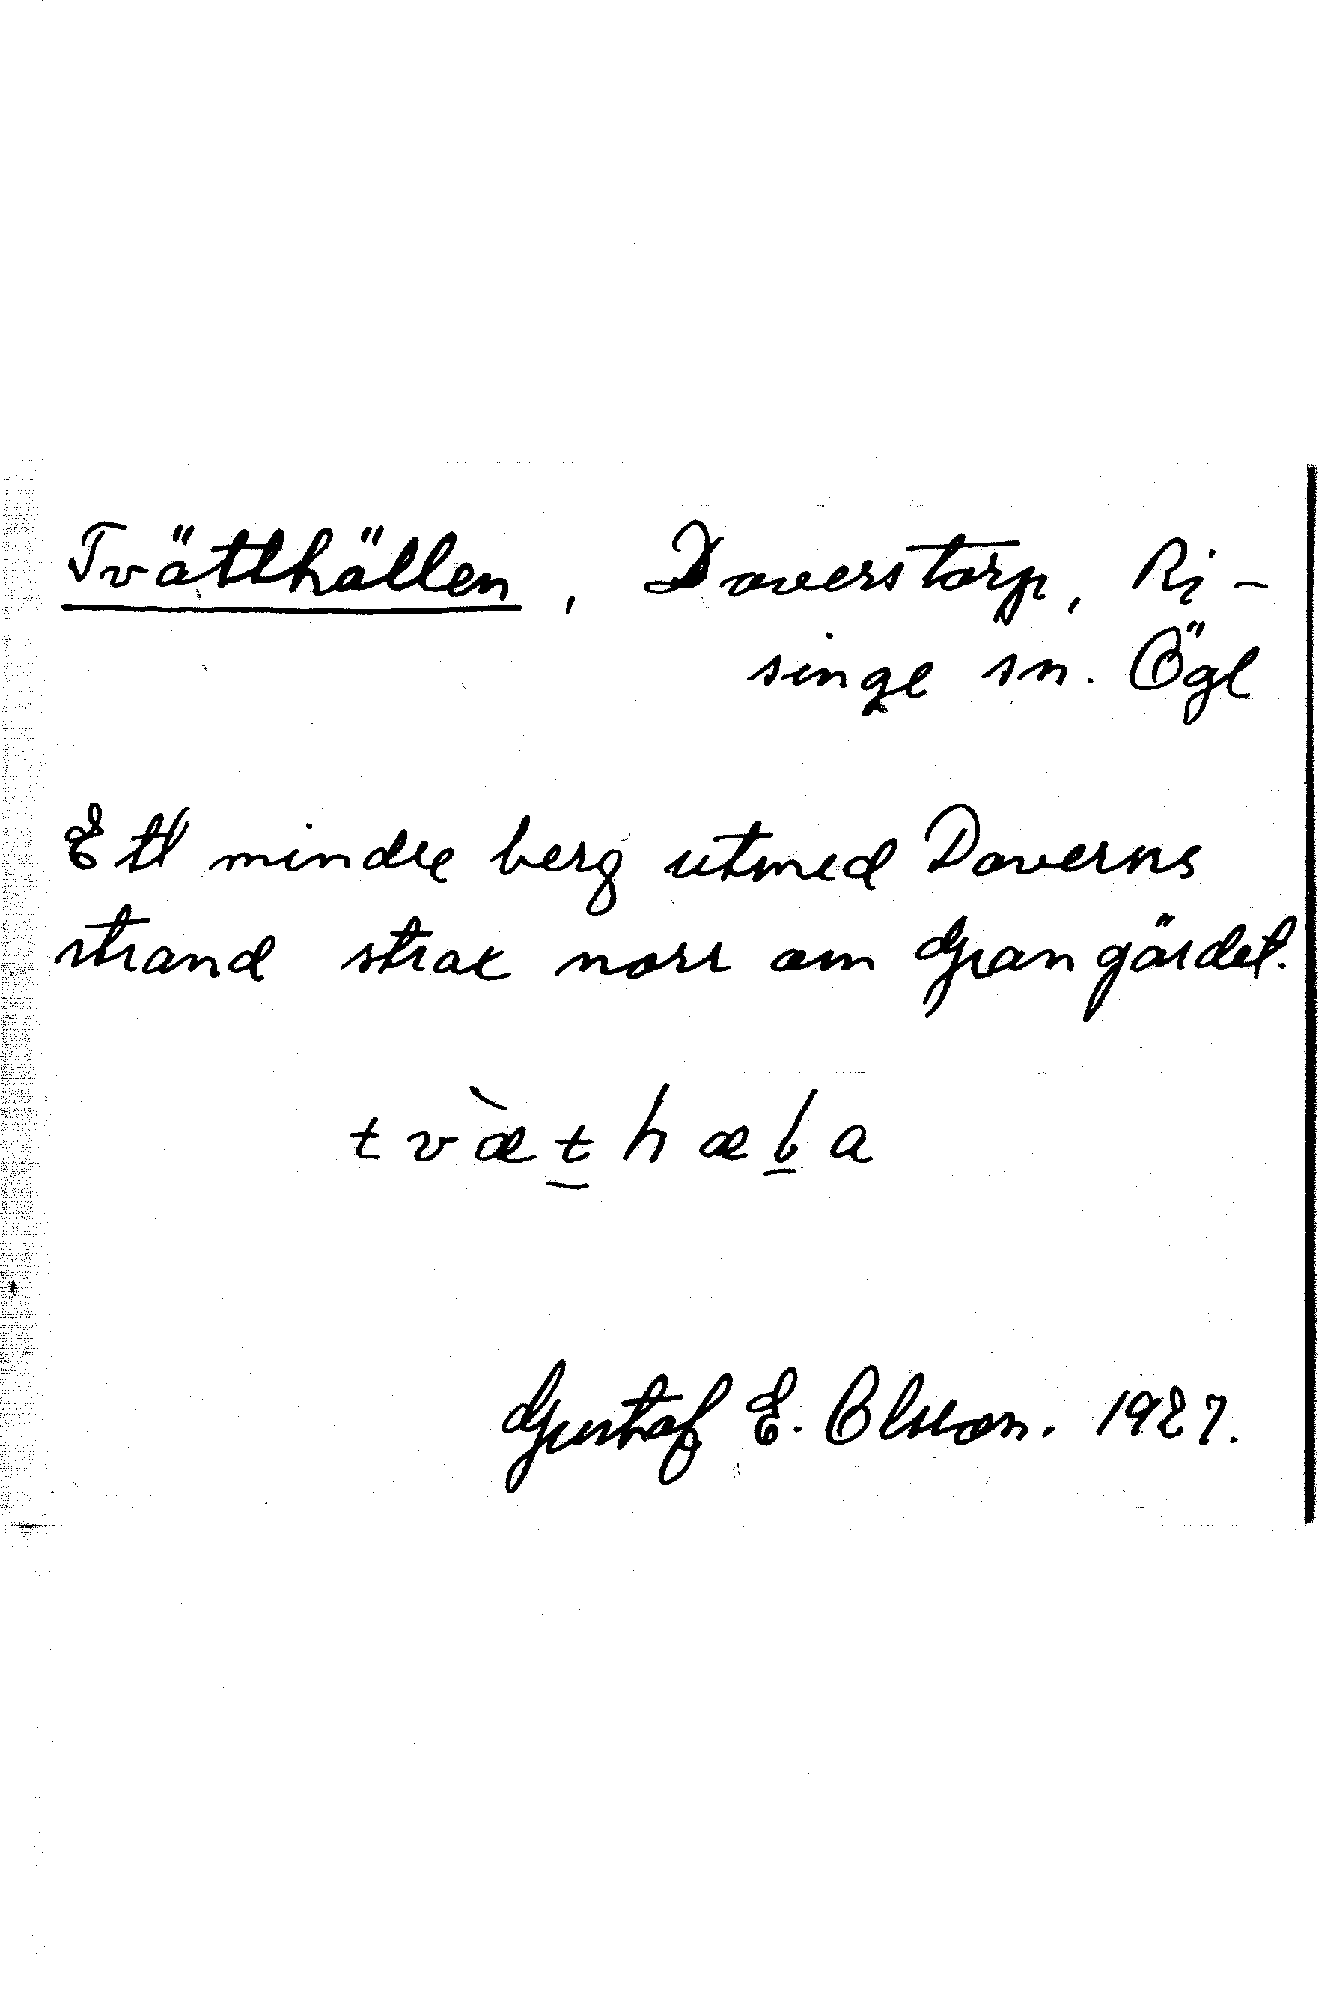 Tvätthällen, Daverstorp, Ri-
singe sn. Ögl
Ett mindre berg utmed Daverns
strand strax norr om Grangärdet.
tvæ̀t̲hæl̲a
Gustaf E. Olsson. 1927.